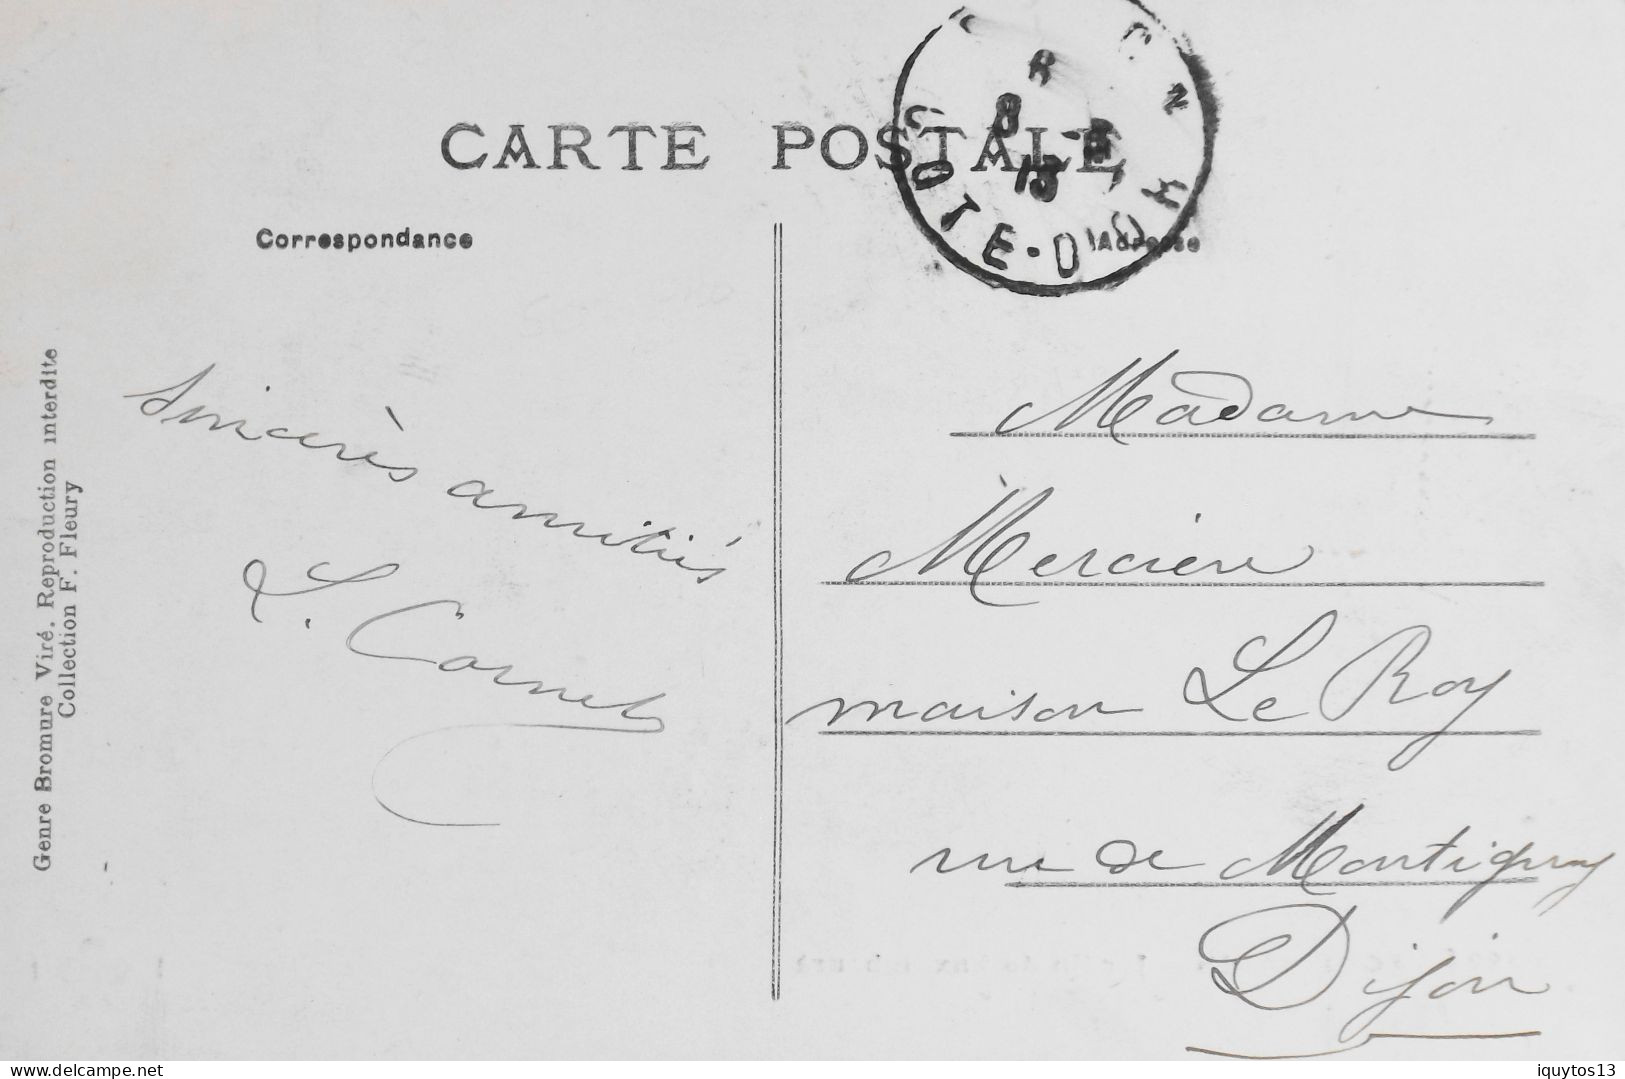 CARTE POSTALE
Correspondance
Adresse
COTE-D'OR
8 -8
13
Sincères amitiés
L. Cornet
Madame
Mercière
maison Le Roy
rue de Montigny
Dijon
Genre Bromure Viré. Reproduction interdite
Collection F. Fleury
delcampe.net
iquytos13